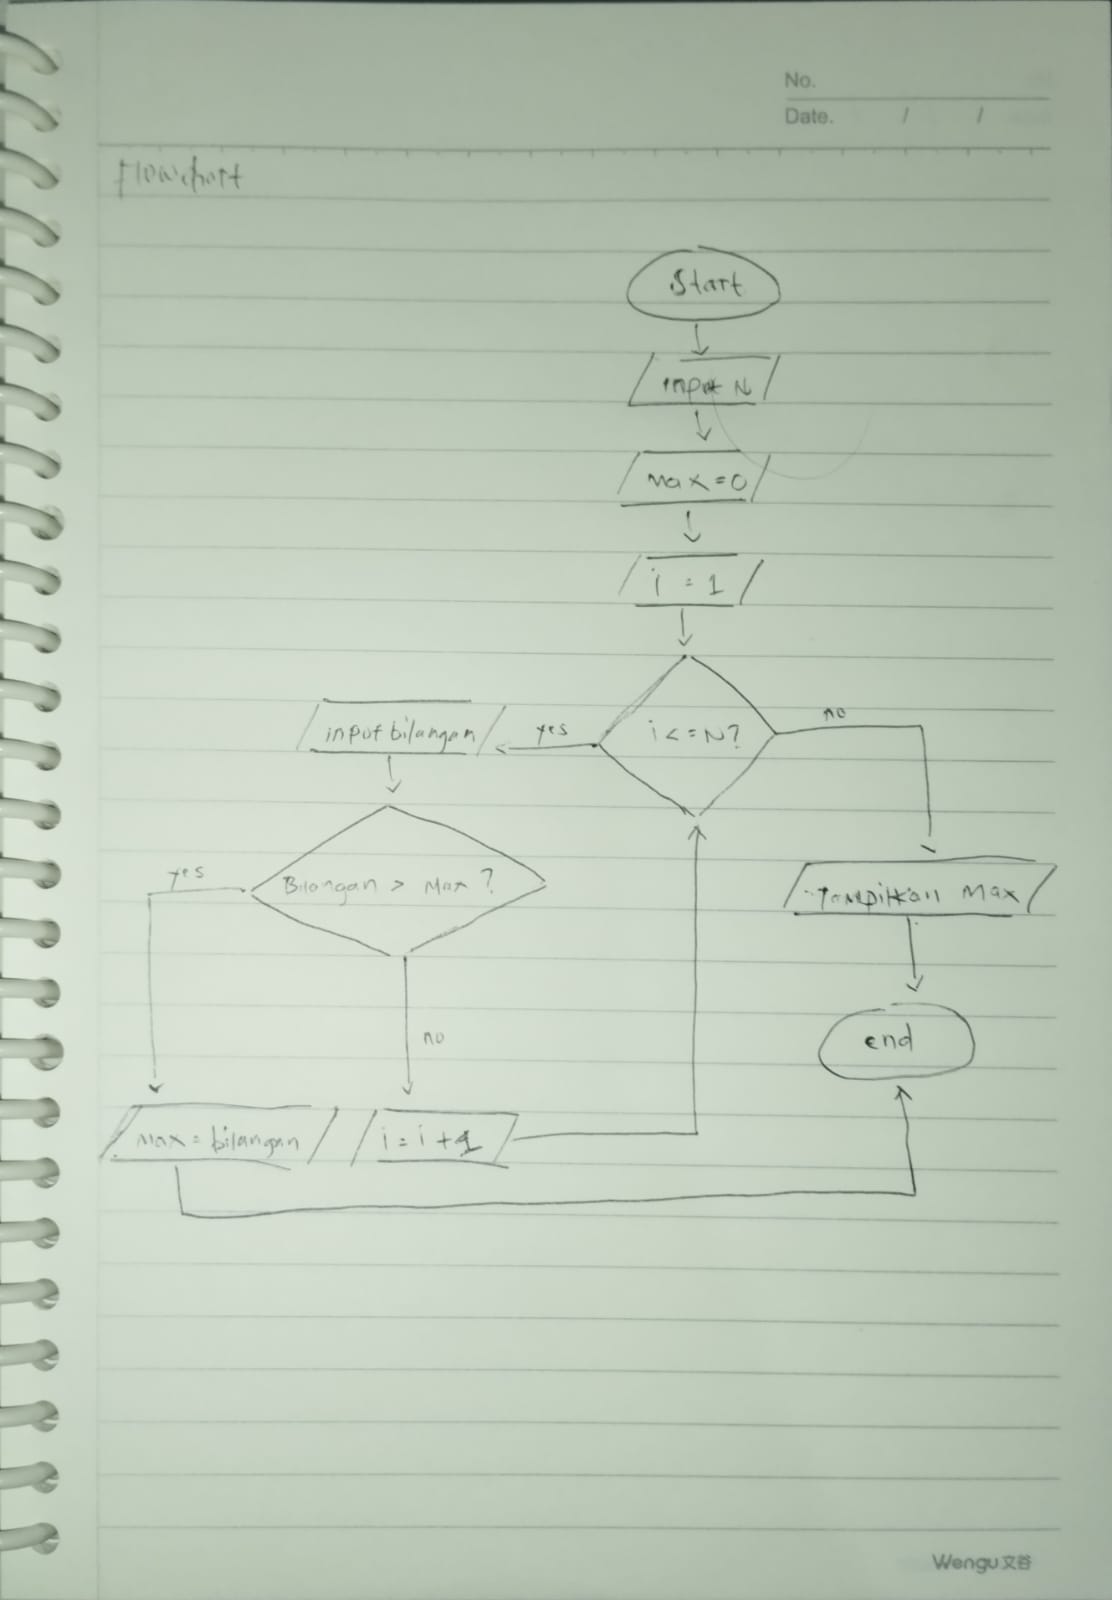 No.
Date. / /
Flowchart
Start
input N
Max = 0
i = 1
i <= N?
yes
no
input bilangan
Bilangan > Max ?
yes
no
Tampilkan Max
end
Max = bilangan
i = i + 1
Wengu文谷